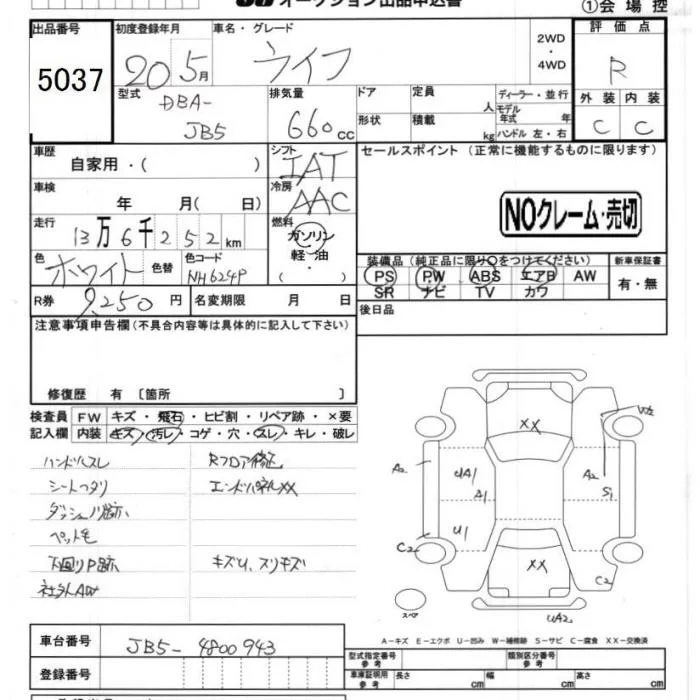 オークション出品申込書
①会場控
出品番号
5037
初度登録年月
20 5月
車名・グレード
ライフ
2WD
・
4WD
評価点
R
型式
DBA-
JB5
排気量
660cc
ドア
定員
人
形状
積載
kg
ディーラー・並行
モデル年式 年
ハンドル 左・右
外装 内装
C C
車歴
自家用・( )
シフト
IAT
セールスポイント (正常に機能するものに限ります)
車検
年 月( 日)
冷房
AAC
NOクレーム・売切
走行
13万6千252km
燃料
ガソリン
軽・油
・
色
ホワイト
色替
色コード
NH624P
( )
装備品(純正品に限り○をつけてください)
PS PW ABS エアB AW
SR ナビ TV カワ
新車保証書
有・無
R券
9,250円
名変期限 月 日
後日品
注意事項申告欄(不具合内容等は具体的に記入して下さい)
修復歴 有〔箇所 〕
検査員 FW キズ・飛石・ヒビ割・リペア跡・×要
記入欄 内装 キズ・汚レ・コゲ・穴・スレ・キレ・破レ
ハンドルスレ
Rフロア修正
シートヘタリ
エンドパネルXX
ダッシュノリ跡
ペット毛
下回りP跡
キズU、スリキズ
社外AW
XX
W2
A2
UA1
A1
A2
S1
U1
C2
XX
C2
スペア
UA2
A-キズ E-エクボ U-凹み W-補修跡 S-サビ C-腐食 XX-交換済
車台番号
JB5-4800943
登録番号
型式指定番号
参考
類別区分番号
参考
車庫証明用
参考
長さ cm
幅 cm
高さ cm